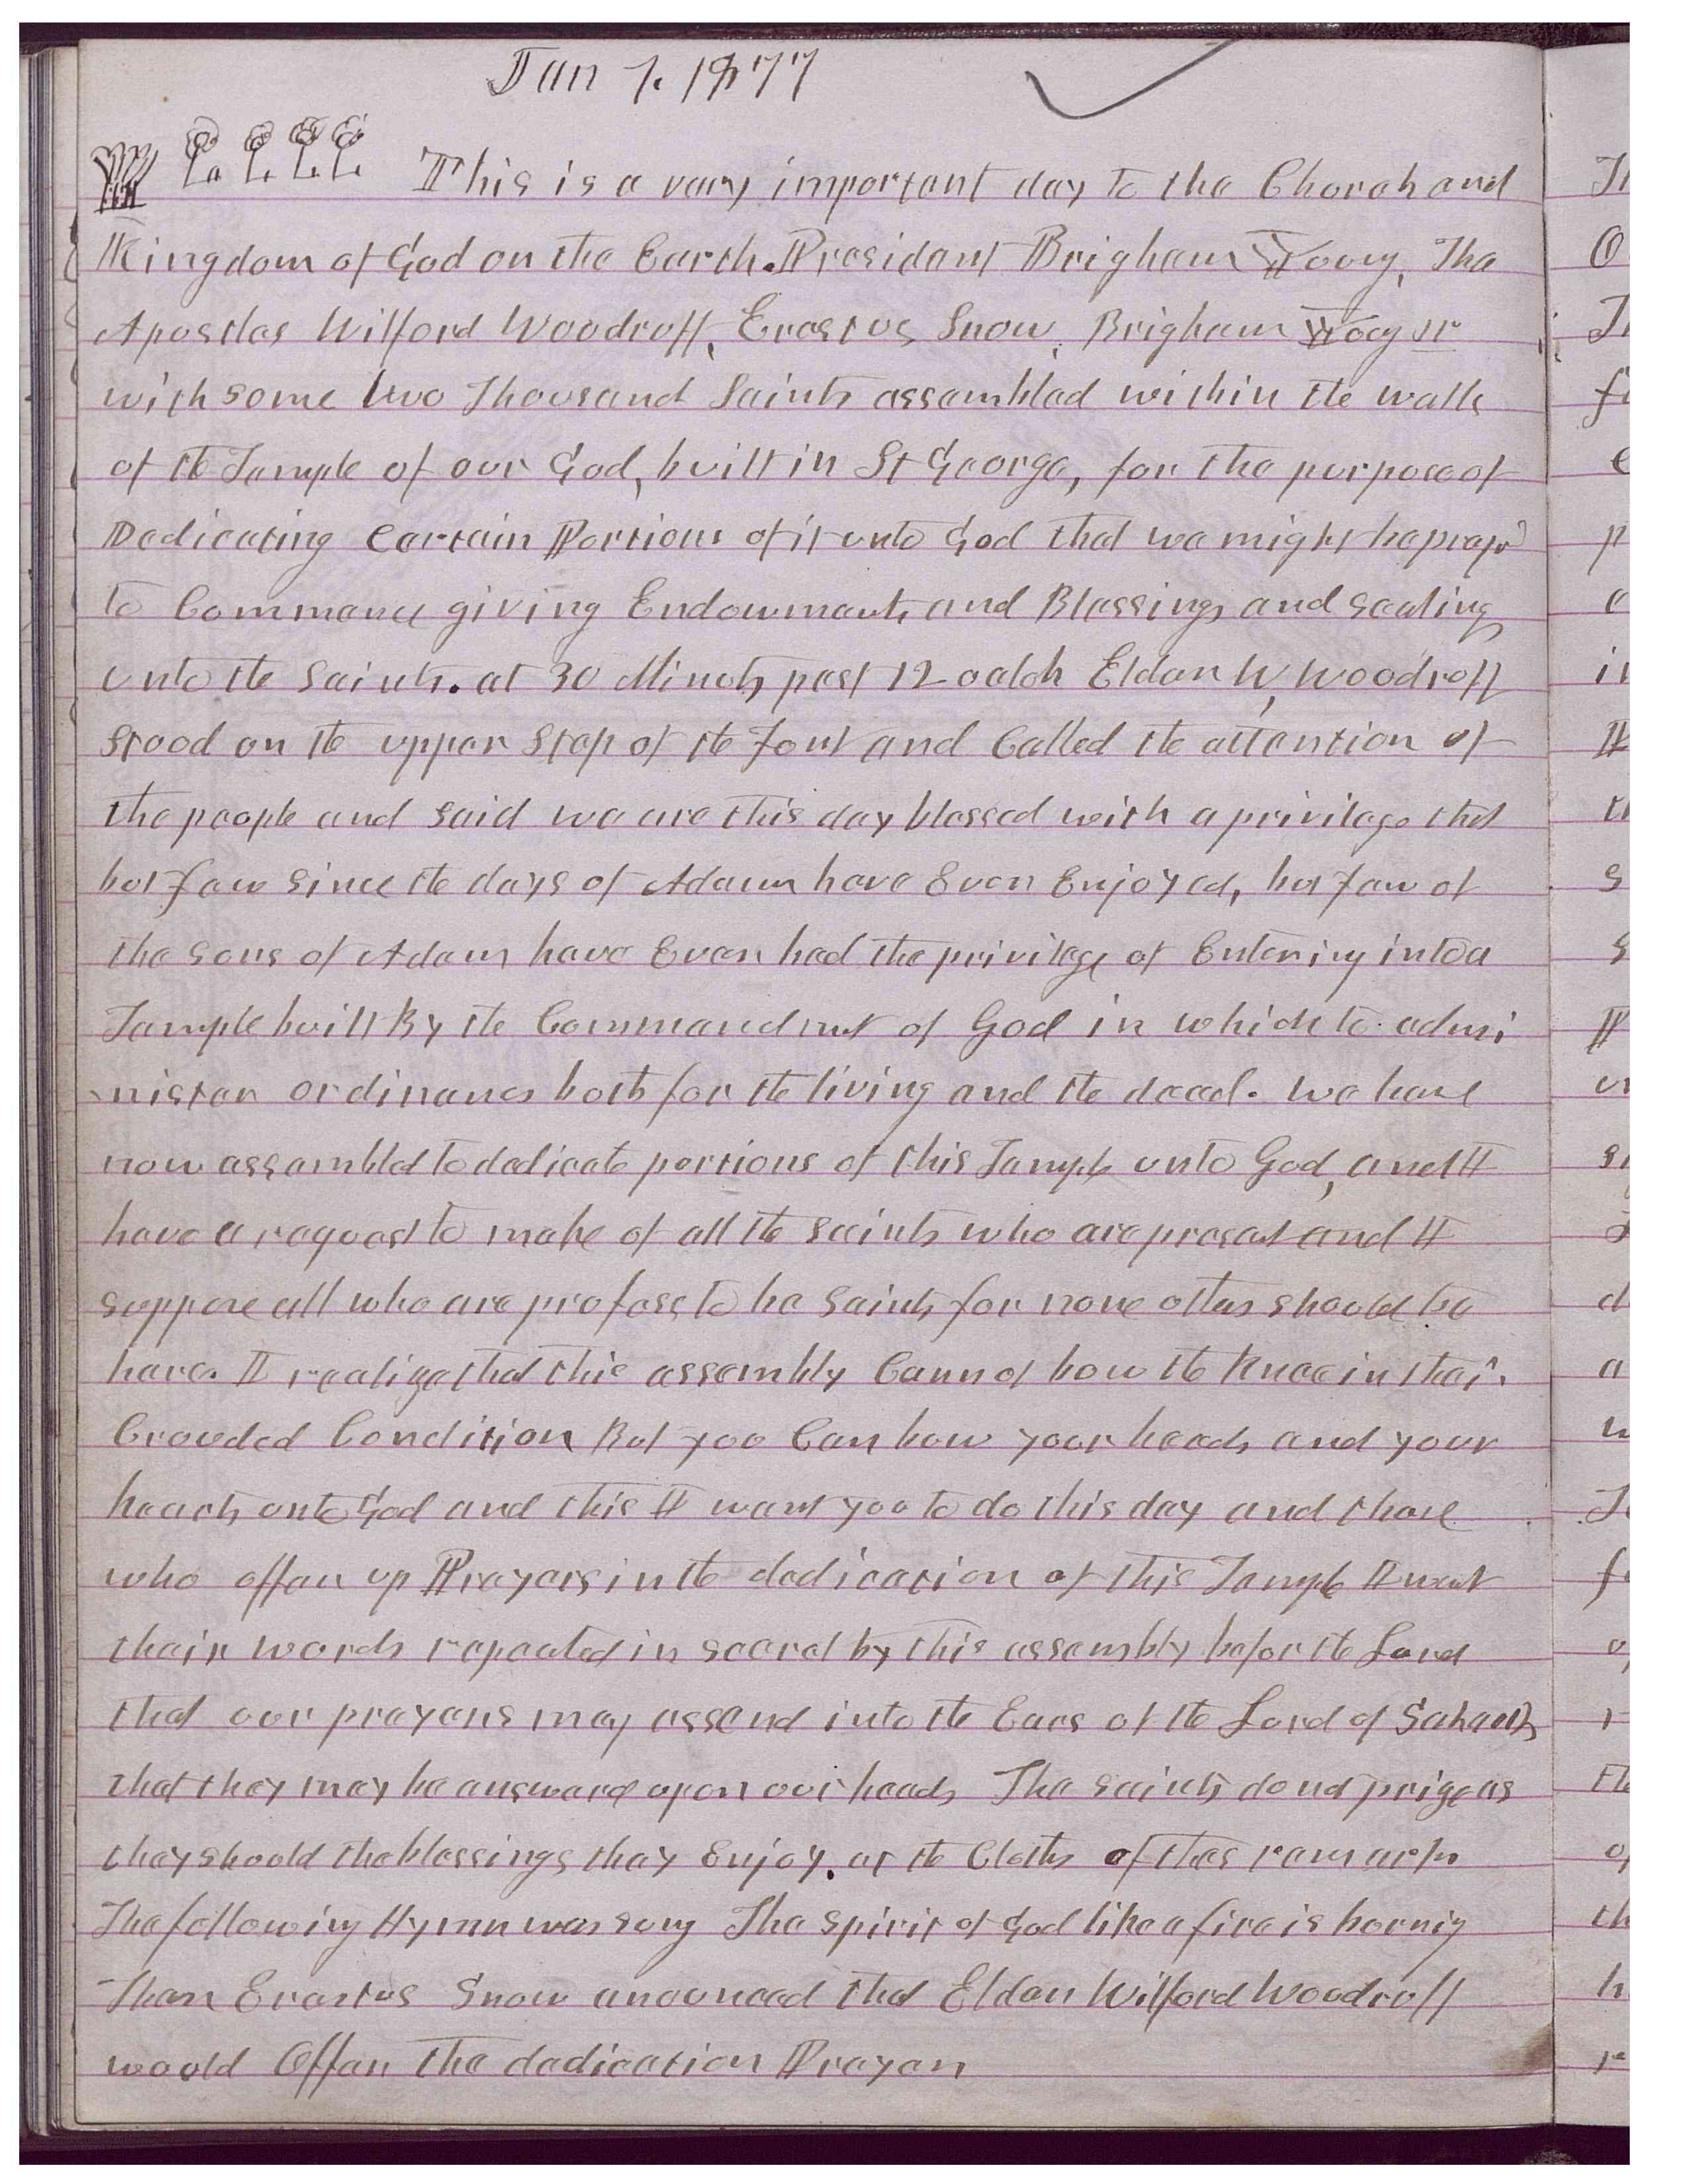 Jan 1. 1877
This is a very important day to the Church and
Kingdom of God on the Earth. President Brigham Young, The
Apostles Wilford Woodruff, Erastus Snow, Brigham Young Jr
with some two Thousand Saints assembled within the walls
of the Temple of our God, built in St George, for the purpose of
Dedicating Certain Portions of it unto God that we might be prepared
to Commence giving Endowments and Blessings and sealing
unto the Saints. at 30 Minuts past 12 oclok Elder W, Woodruff
stood on the upper Step of the font and Called the attention of
the people and said we are this day blessed with a privilege that
but few since the days of Adam have Ever Enjoyed, but few of
the sons of Adam have Ever had the privilege of Entering into a
Temple built By the Commandmet of God in which to admi
nister ordinances both for the living and the dead. we have
now assembled to dedicate portions of this Temple unto God, and I
have a request to make of all the saints who are present and I
suppose all who are profess to be Saints for none others should be
here. I realize that this assembly Cannot bow the Knee in their
Crouded Condition But you Can bow your heads and your
hearts unto God and this I want you to do this day and those
who offer up Prayers in the dedication of this Temple I want
their words repeated in secret by this assembly befor the Lord
that our prayers may assend into the Ears of the Lord of Sabaoth
that they may be answered upon our heads The saints do not prize as
they should the blessings they Enjoy. at the Close of thes remarks
The following Hymn was sung The spirit of God like a fire is burnig
Then Erastus Snow anounced that Elder Wilford Woodruff
would Offer the dedication Prayer